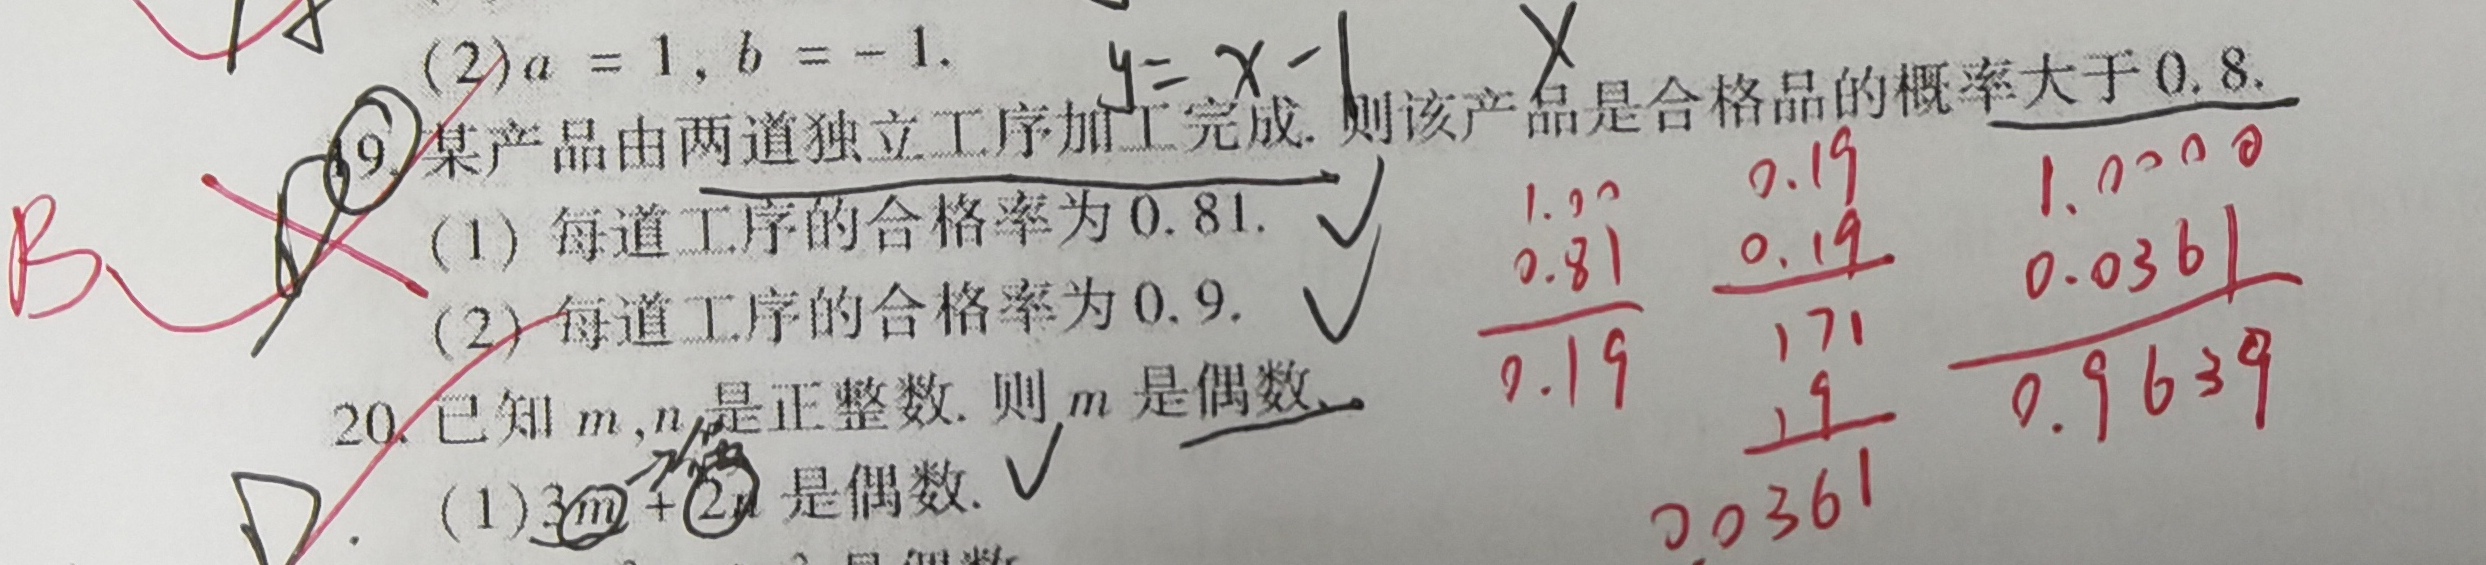 (2) a = 1, b = -1.
y = x - 1
19. 某产品由两道独立工序加工完成. 则该产品是合格品的概率大于 0.8.
B
(1) 每道工序的合格率为 0.81. ✓
(2) 每道工序的合格率为 0.9. ✓
1.00
0.81
0.19
0.19
0.19
171
19
0.0361
1.0000
0.0361
0.9639
20. 已知 m,n 是正整数. 则 m 是偶数.
D.
(1) 3m + 2n 是偶数. ✓
是偶数